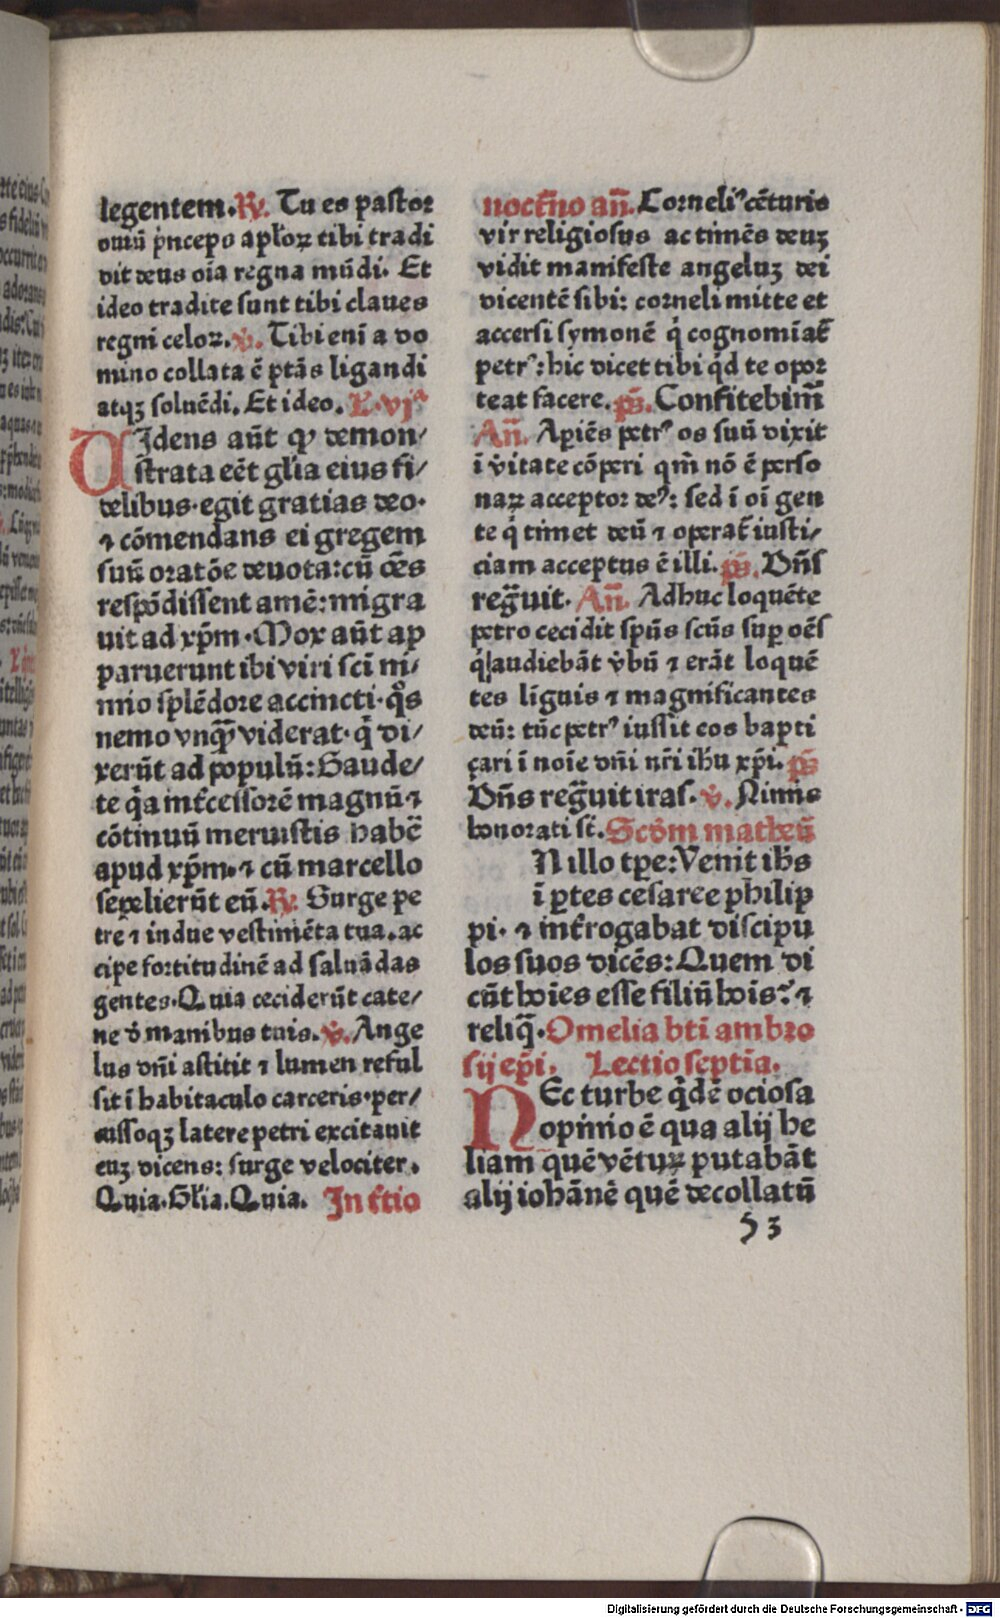 legentem. R̷. Tu es pastor
ouiũ p̃nceps apl̃oꝝ tibi tradi
dit deus oĩa regna mũdi. Et
ideo tradite sunt tibi claues
regni celoꝝ. v̷. Tibi eni᷑ a do
mino collata ẽ ptãs ligandi
atqꝫ soluẽdi. Et ideo. L. vjᵃ
VIdens aũt ꝙ demon⸗
strata eẽt gl̃ia eius fi⸗
delibus·egit gratias deo·
⁊ cõmendans ei gregem
suũ oratõe deuota: cũ oẽs
respõdissent amẽ: migra
uit ad xp̃m·Mox aũt ap
paruerunt ibi viri scĩ ni⸗
mio splẽdore accincti·qͦs
nemo vnqꝫ̃ viderat·q̇ di⸗
xerũt ad populũ: Gaude⸗
te qͥa intẽcessorẽ magnũ ⁊
cõtinuũ meruistis habẽ
apud xp̃m·⁊ cũ marcello
sepelierũt eũ. R̷. Surge pe
tre ⁊ indue vestimẽta tua. ac
cipe fortitudinẽ ad saluãdas
gentes·Quia ceciderũt cate⸗
ne d̾ manibus tuis. v̷. Ange
lus dñi astitit ⁊ lumen reful
sit ĩ habitaculo carceris·per⸗
cussoqꝫ latere petri excitauit
euꝫ dicens: surge velociter.
Quia·Gl̃ia. Quia. In t̃tio
noct̃no añ. Corneliꝰ cẽturio
vir religiosus ac timẽs deuꝫ
vidit manifeste angeluꝫ dei
dicentẽ sibi: corneli mitte et
accersi symonẽ q̇ cognomiat̃
petrꝰ: hic dicet tibi qͥd te opor
teat facere. pš. Confitebim̃
Añ. Apiẽs petrꝰ os suũ dixit
ĩ v̾itate cõperi qm̃ nõ ẽ perso
naꝝ acceptor deꝰ: sed ĩ oĩ gen
te q̇ timet deũ ⁊ operat̃ iusti⸗
ciam acceptus ẽ illi. pš. Dñs
regꝫ̃uit. Añ. Adhuc loquẽte
petro cecidit spũs scũs sup oẽs
q̇ audiebãt v̾bũ ⁊ erãt loquẽ
tes lĩguis ⁊ magnificantes
deũ: tũc petrꝰ iussit eos bapti
çari ĩ noĩe dñi nr̃i ihũ xp̃i. pš
Dñs regꝫ̃uit iras. v̷. Nimis
honorati st̃. Scd̾m matheũ
IN illo tp̃e: Venit ih̃s
ĩ ꝑtes cesaree philip
pi·⁊ int̃rogabat discipu
los suos dicẽs: Quem di
cũt hoĩes esse filiũ hoĩs? ⁊
reliq̃. Omelia btĩ ambro
sij epĩ. Lectio septĩa.
NEc turbe qͥdẽ ociosa
opinio ẽ qua alij he
liam quẽ vẽtuꝝ putabãt
alij iohãnẽ quẽ decollatũ
53
Digitalisierung gefördert durch die Deutsche Forschungsgemeinschaft - DFG